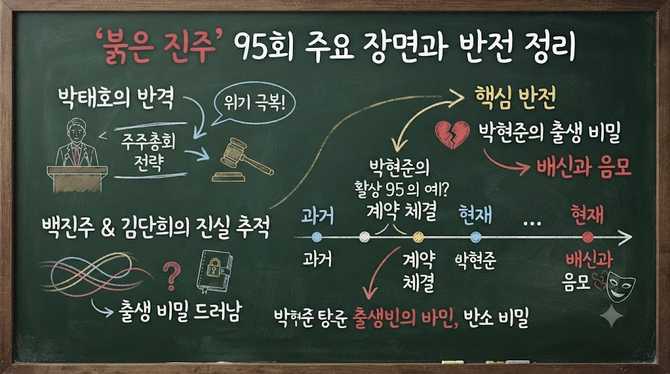 ‘붉은 진주’ 95회 주요 장면과 반전 정리
박태호의 반격
위기 극복!
주주총회
전략
백진주 & 김단희의 진실 추적
?
출생 비밀 드러남
핵심 반전
박현준의 출생 비밀
배신과 음모
박현준의
활상 95의 예!?
계약 체결
과거
현재
...
현재
과거
계약
체결
박현준
배신과
음모
박현준 탕룬 출생빈의 바인, 반소 비밀